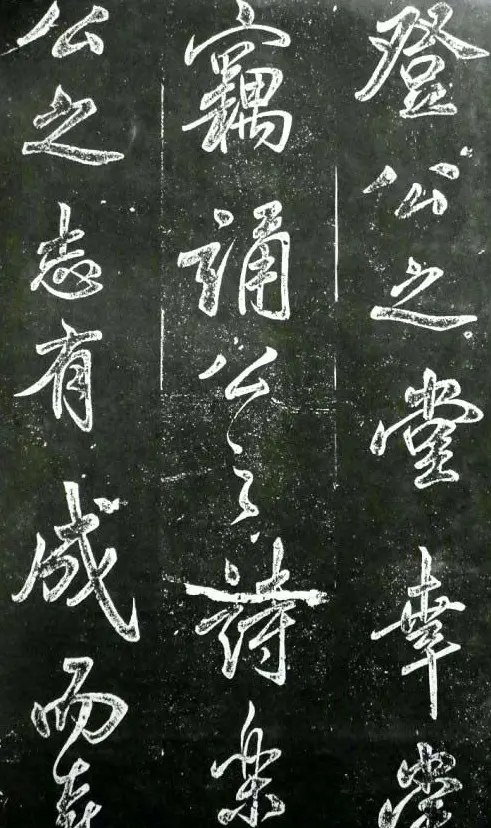 登公之堂幸嘗
竊誦公之詩樂
公之志有成而喜